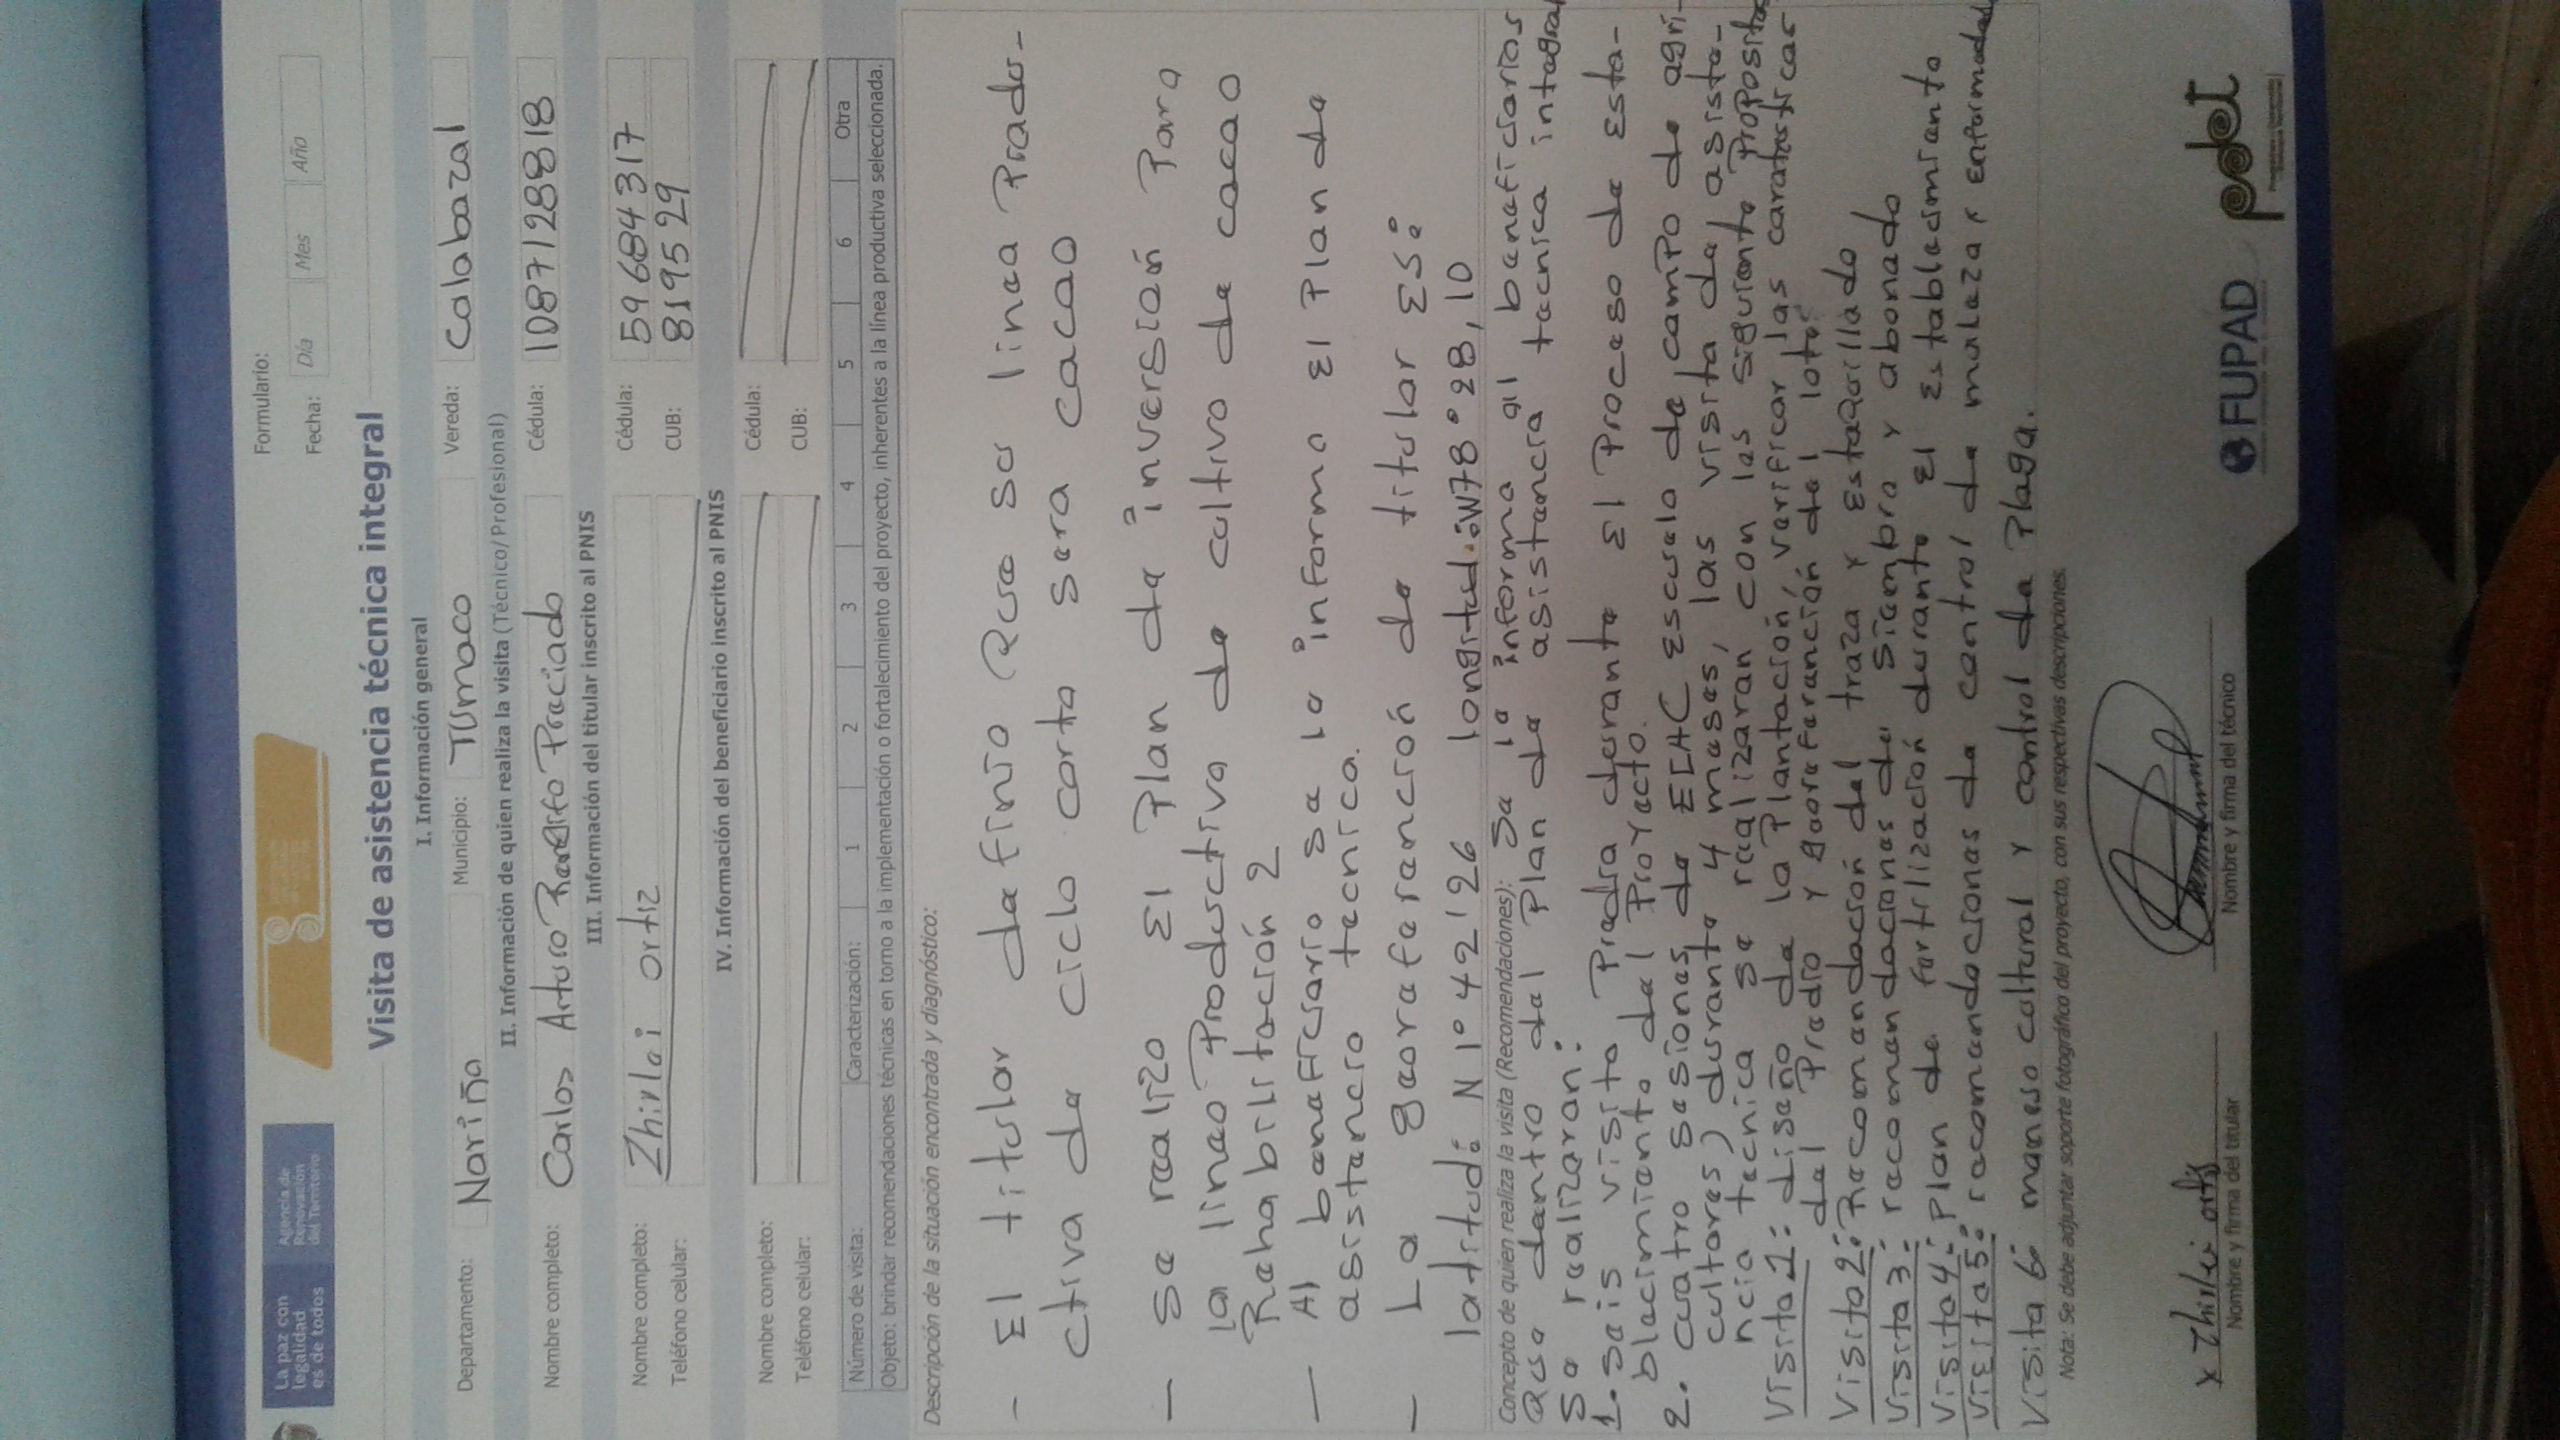 La paz con
legalidad
es de todos
Agencia de
Renovación
del Territorio
Formulario:
Fecha: Día Mes Año
Visita de asistencia técnica integral
I. Información general
Departamento: Nariño Municipio: Tumaco Vereda: Calabazal
II. Información de quien realiza la visita (Técnico/Profesional)
Nombre completo: Carlos Arturo Preciado Cédula: 1087128818
III. Información del titular inscrito al PNIS
Nombre completo: Zhirlai ortiz Cédula: 59684317
Teléfono celular: CUB: 819529
IV. Información del beneficiario inscrito al PNIS
Nombre completo: Cédula:
Teléfono celular: CUB:
Número de visita: Caracterización: 1 2 3 4 5 6 Otra
Objeto: brindar recomendaciones técnicas en torno a la implementación o fortalecimiento del proyecto, inherentes a la línea productiva seleccionada.
Descripción de la situación encontrada y diagnóstico:
- El titular definio Que su linea Produ-
ctiva de ciclo corto sera cacao
- se realizo El Plan de inversión Para
la linea Productiva de cultivo de cacao
Rehabilitación 2
- Al beneficiario se le informo El Plan de
asistencia tecnica.
- La georeferención de titular Es:
latitud: N 1° 42' 26 longitud: W78° 28, 10
Concepto de quien realiza la visita (Recomendaciones): Se le informa al beneficiarios
Que dentro del Plan de asistencia tecnica integral
Se realizaran:
1. seis visita Predio durante El Proceso de Esta-
blecimiento del Proyecto.
2. cuatro sesiones de ECAC escuela de campo de agri-
cultores) durante 4 meses, las visita de asiste-
ncia tecnica se realizaran con las siguiente Propositos
Visita 1: diseño de la Plantación, verificar las
del Predio y georeferanción del lote.
Visita 2: Recomendación del traza y Estaquillado
Visita 3: recomendaciones de siembra y abonado
Visita 4: Plan de fertilización durante El Establecimiento
Visita 5: recomendaciones de control de maleza y Enfermedades
Visita 6: manejo cultural y control de Plaga.
Nota: Se debe adjuntar soporte fotográfico del proyecto, con sus respectivas descripciones.
x Zhirlei ortiz
Nombre y firma del titular
Nombre y firma del técnico
FUPAD
pdet